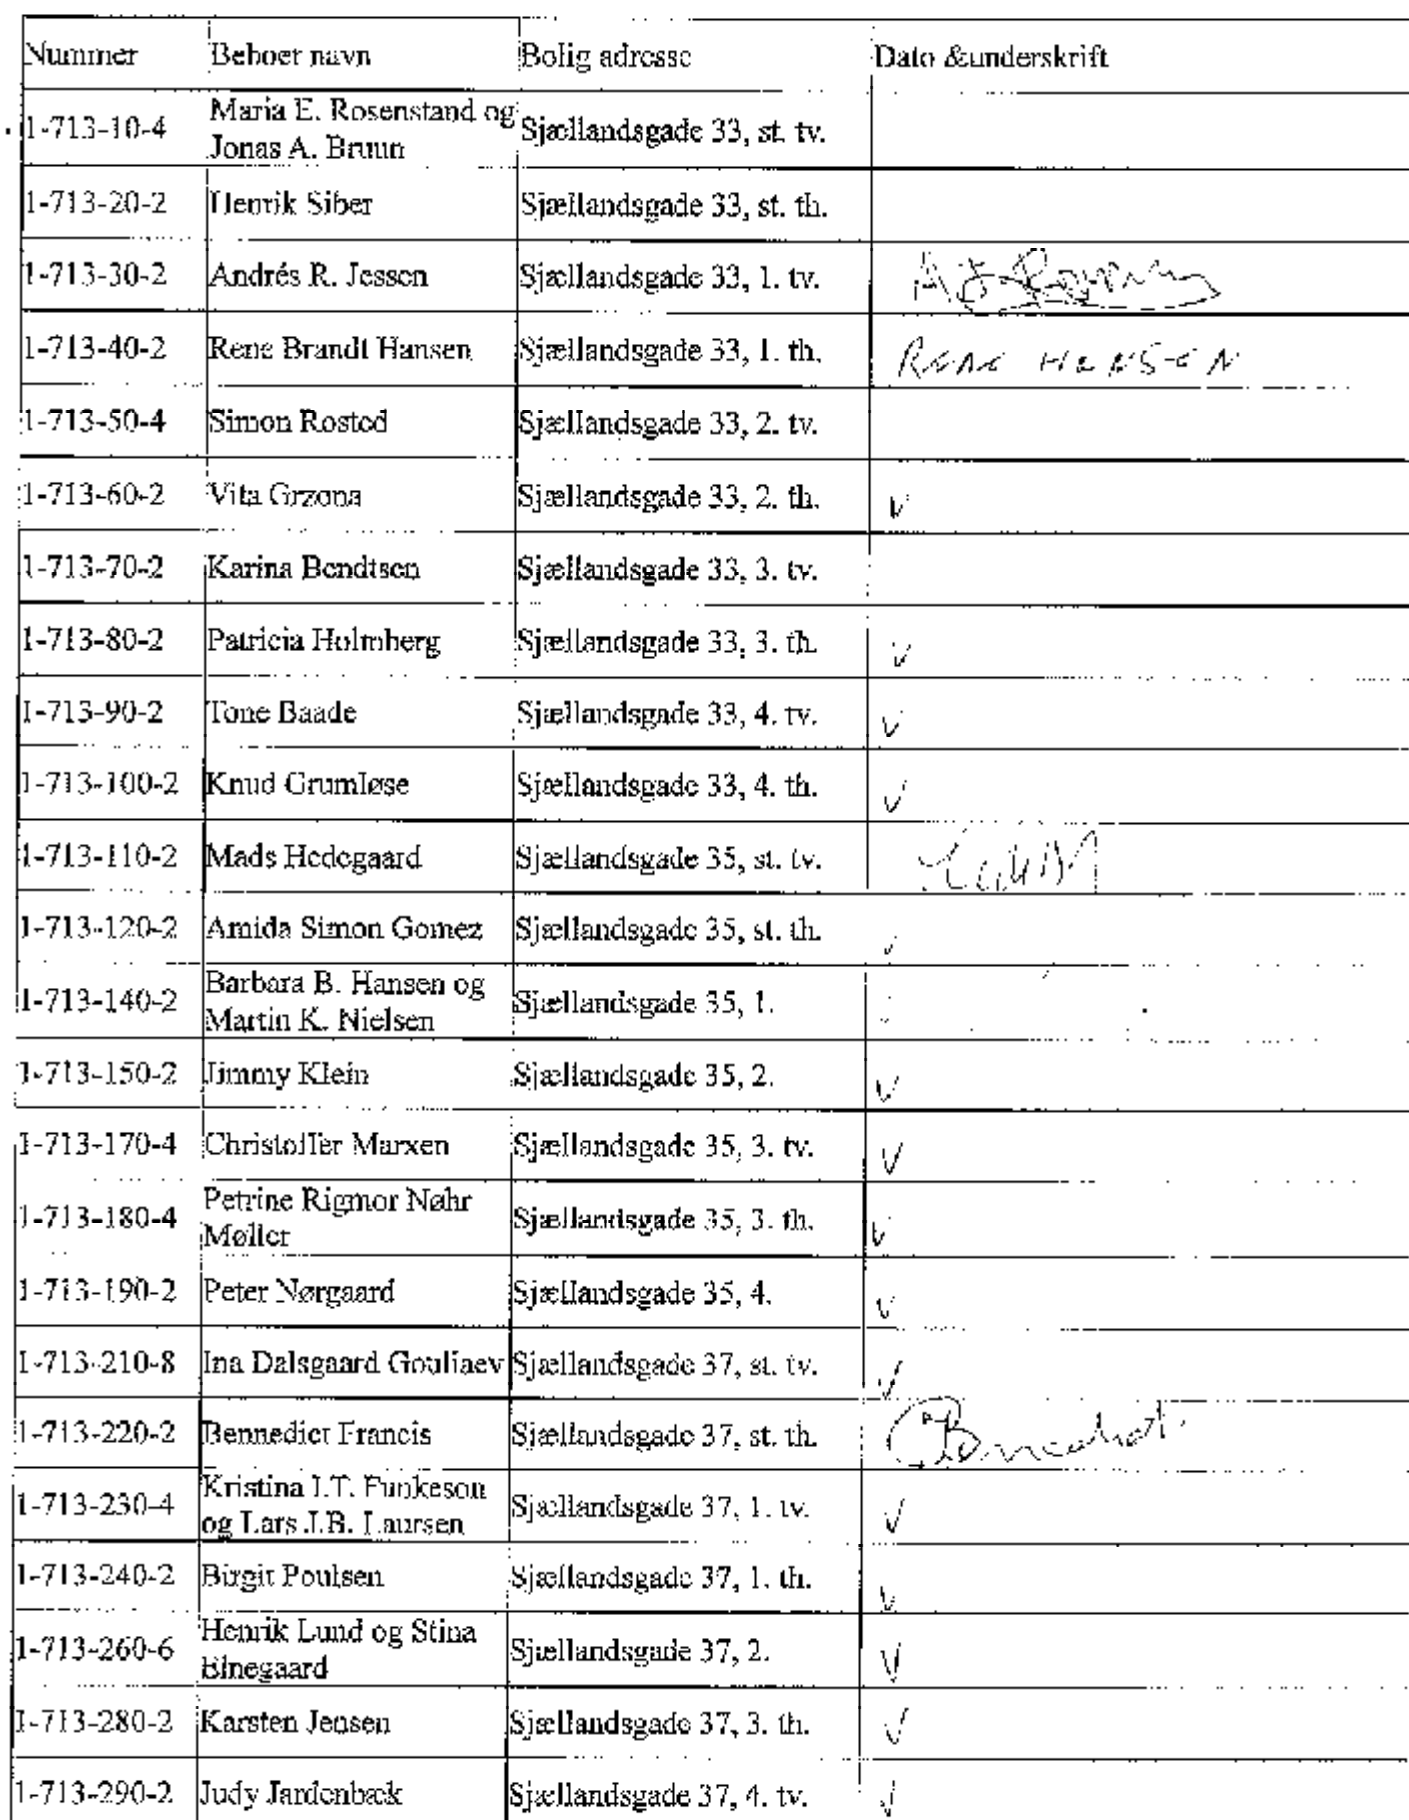 Nummer Beboer navn Bolig adresse Dato &underskrift
1-713-10-4 Maria E. Rosenstand og Jonas A. Bruun Sjællandsgade 33, st. tv.
1-713-20-2 Henrik Siber Sjællandsgade 33, st. th.
1-713-30-2 Andrés R. Jessen Sjællandsgade 33, 1. tv.
1-713-40-2 Rene Brandt Hansen Sjællandsgade 33, 1. th. RENE HANSEN
1-713-50-4 Simon Rosted Sjællandsgade 33, 2. tv.
1-713-60-2 Vita Grzona Sjællandsgade 33, 2. th. ✓
1-713-70-2 Karina Bendtsen Sjællandsgade 33, 3. tv.
1-713-80-2 Patricia Holmberg Sjællandsgade 33, 3. th. ✓
1-713-90-2 Tone Baade Sjællandsgade 33, 4. tv. ✓
1-713-100-2 Knud Grumløse Sjællandsgade 33, 4. th. ✓
1-713-110-2 Mads Hedegaard Sjællandsgade 35, st. tv.
1-713-120-2 Amida Simon Gomez Sjællandsgade 35, st. th. ✓
1-713-140-2 Barbara B. Hansen og Martin K. Nielsen Sjællandsgade 35, 1. ✓
1-713-150-2 Jimmy Klein Sjællandsgade 35, 2. ✓
1-713-170-4 Christoffer Marxen Sjællandsgade 35, 3. tv. ✓
1-713-180-4 Petrine Rigmor Nøhr Møller Sjællandsgade 35, 3. th. ✓
1-713-190-2 Peter Nørgaard Sjællandsgade 35, 4. ✓
1-713-210-8 Ina Dalsgaard Gouliaev Sjællandsgade 37, st. tv. ✓
1-713-220-2 Bennedict Francis Sjællandsgade 37, st. th. Bennedict
1-713-230-4 Kristina I.T. Funkeson og Lars J.B. Laursen Sjællandsgade 37, 1. tv. ✓
1-713-240-2 Birgit Poulsen Sjællandsgade 37, 1. th. ✓
1-713-260-6 Henrik Lund og Stina Elnegaard Sjællandsgade 37, 2. ✓
1-713-280-2 Karsten Jensen Sjællandsgade 37, 3. th. ✓
1-713-290-2 Judy Jardenbæk Sjællandsgade 37, 4. tv. ✓